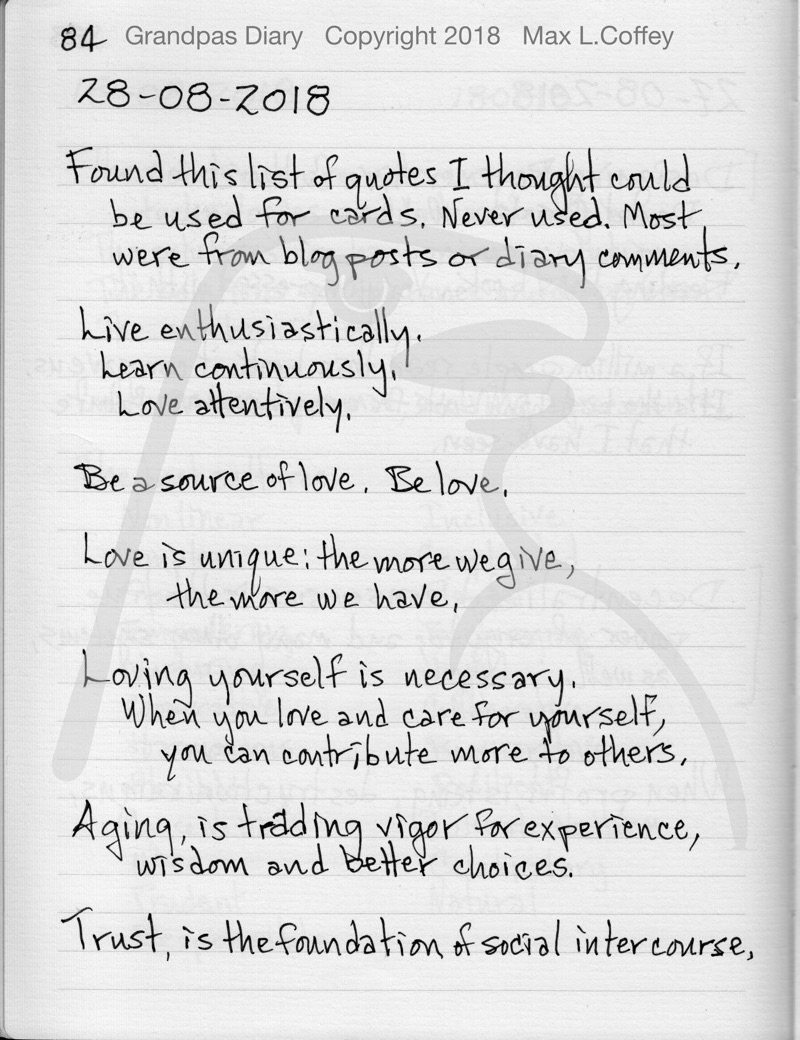 84 Grandpas Diary Copyright 2018 Max L.Coffey
28-08-2018
Found this list of quotes I thought could
be used for cards. Never used. Most
were from blog posts or diary comments.
Live enthusiastically.
Learn continuously.
Love attentively.
Be a source of love. Be love.
Love is unique: the more we give,
the more we have.
Loving yourself is necessary.
When you love and care for yourself,
you can contribute more to others.
Aging, is trading vigor for experience,
wisdom and better choices.
Trust, is the foundation of social intercourse,